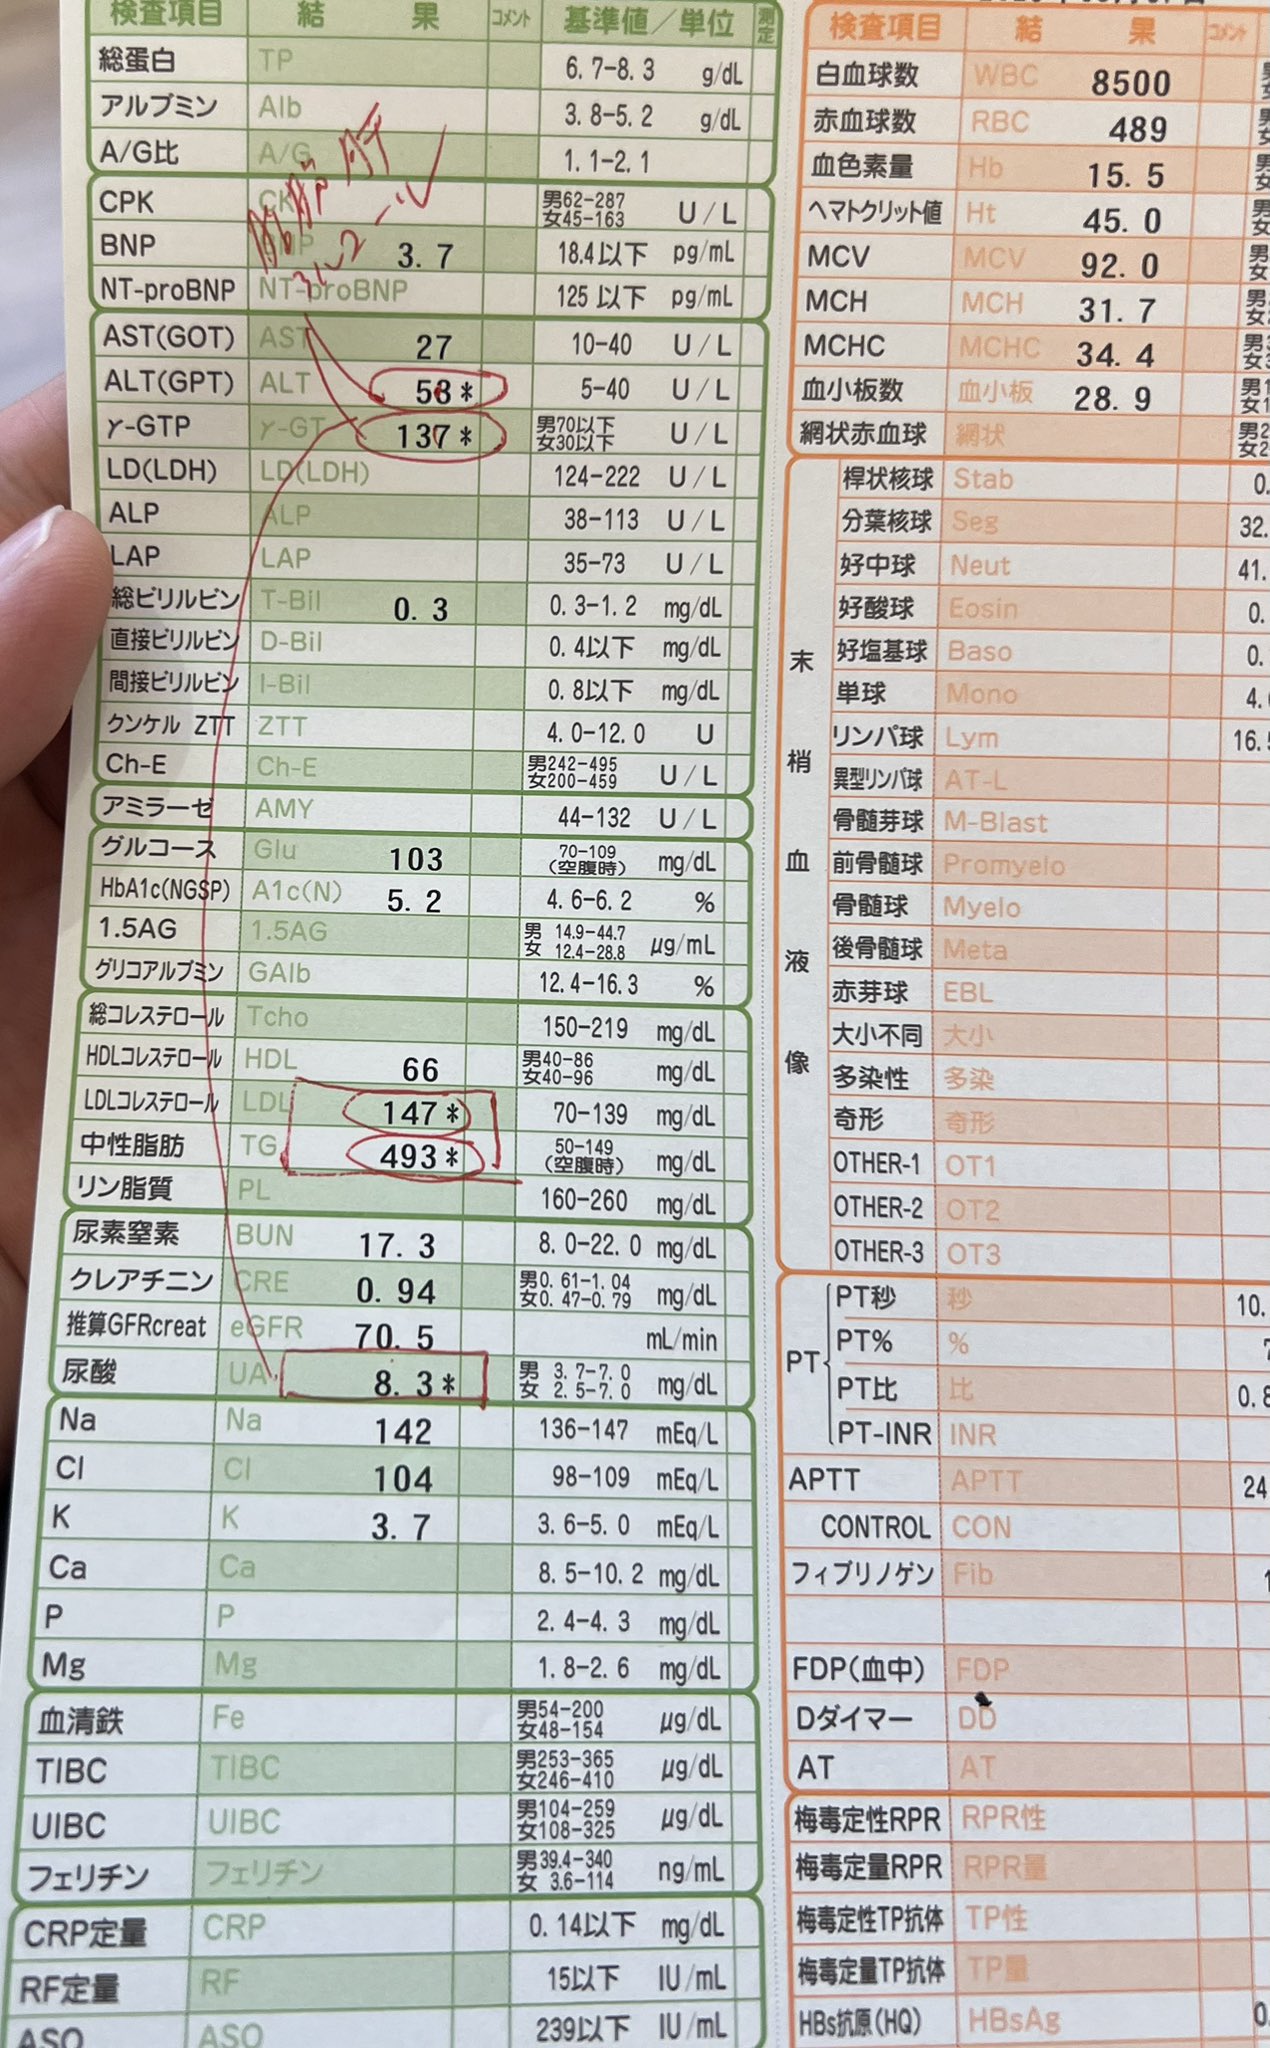 検査項目 結 果 コメント 基準値/単位 測定
総蛋白 TP 6.7-8.3 g/dL
アルブミン Alb 3.8-5.2 g/dL
A/G比 A/G 1.1-2.1
CPK CK 男62-287 女45-163 U/L
BNP BNP 3.7 18.4以下 pg/mL
NT-proBNP NT-proBNP 125以下 pg/mL
AST(GOT) AST 27 10-40 U/L
ALT(GPT) ALT 58* 5-40 U/L
γ-GTP γ-GT 137* 男70以下 女30以下 U/L
LD(LDH) LD(LDH) 124-222 U/L
ALP ALP 38-113 U/L
LAP LAP 35-73 U/L
総ビリルビン T-Bil 0.3 0.3-1.2 mg/dL
直接ビリルビン D-Bil 0.4以下 mg/dL
間接ビリルビン I-Bil 0.8以下 mg/dL
クンケル ZTT ZTT 4.0-12.0 U
Ch-E Ch-E 男242-495 女200-459 U/L
アミラーゼ AMY 44-132 U/L
グルコース Glu 103 70-109 (空腹時) mg/dL
HbA1c(NGSP) A1c(N) 5.2 4.6-6.2 %
1.5AG 1.5AG 男 14.9-44.7 女 12.4-28.8 μg/mL
グリコアルブミン GAlb 12.4-16.3 %
総コレステロール Tcho 150-219 mg/dL
HDLコレステロール HDL 66 男40-86 女40-96 mg/dL
LDLコレステロール LDL 147* 70-139 mg/dL
中性脂肪 TG 493* 50-149 (空腹時) mg/dL
リン脂質 PL 160-260 mg/dL
尿素窒素 BUN 17.3 8.0-22.0 mg/dL
クレアチニン CRE 0.94 男0.61-1.04 女0.47-0.79 mg/dL
推算GFRcreat eGFR 70.5 mL/min
尿酸 UA 8.3* 男 3.7-7.0 女 2.5-7.0 mg/dL
Na Na 142 136-147 mEq/L
Cl Cl 104 98-109 mEq/L
K K 3.7 3.6-5.0 mEq/L
Ca Ca 8.5-10.2 mg/dL
P P 2.4-4.3 mg/dL
Mg Mg 1.8-2.6 mg/dL
血清鉄 Fe 男54-200 女48-154 μg/dL
TIBC TIBC 男253-365 女246-410 μg/dL
UIBC UIBC 男104-259 女108-325 μg/dL
フェリチン フェリチン 男39.4-340 女 3.6-114 ng/mL
CRP定量 CRP 0.14以下 mg/dL
RF定量 RF 15以下 IU/mL
ASO ASO 239以下 IU/mL
検査項目 結 果 コメント
白血球数 WBC 8500
赤血球数 RBC 489
血色素量 Hb 15.5
ヘマトクリット値 Ht 45.0
MCV MCV 92.0
MCH MCH 31.7
MCHC MCHC 34.4
血小板数 血小板 28.9
網状赤血球 網状
末梢血液像
桿状核球 Stab 0.
分葉核球 Seg 32.
好中球 Neut 41.
好酸球 Eosin 0.
好塩基球 Baso 0.
単球 Mono 4.
リンパ球 Lym 16.
異型リンパ球 AT-L
骨髄芽球 M-Blast
前骨髄球 Promyelo
骨髄球 Myelo
後骨髄球 Meta
赤芽球 EBL
大小不同 大小
多染性 多染
奇形 奇形
OTHER-1 OT1
OTHER-2 OT2
OTHER-3 OT3
PT
PT秒 秒 10.
PT% %
PT比 比 0.8
PT-INR INR
APTT APTT 24
CONTROL CON
フィブリノゲン Fib
FDP(血中) FDP
Dダイマー DD
AT AT
梅毒定性RPR RPR性
梅毒定量RPR RPR量
梅毒定性TP抗体 TP性
梅毒定量TP抗体 TP量
HBs抗原(HQ) HBsAg 0.